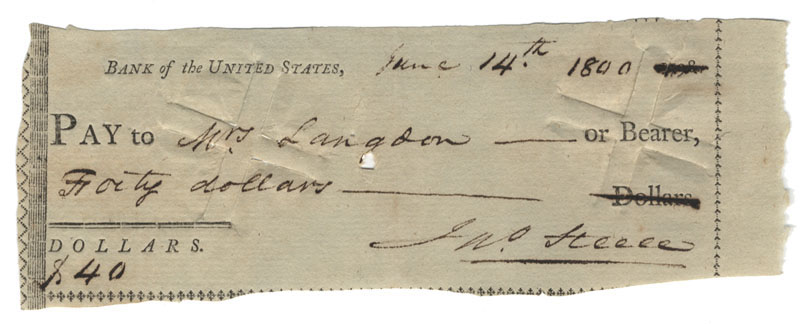 BANK of the UNITED STATES, June 14.th 1800
PAY to Mrs Langdon or Bearer,
Forty dollars Dollars
DOLLARS.
$ 40 Jno. Steele